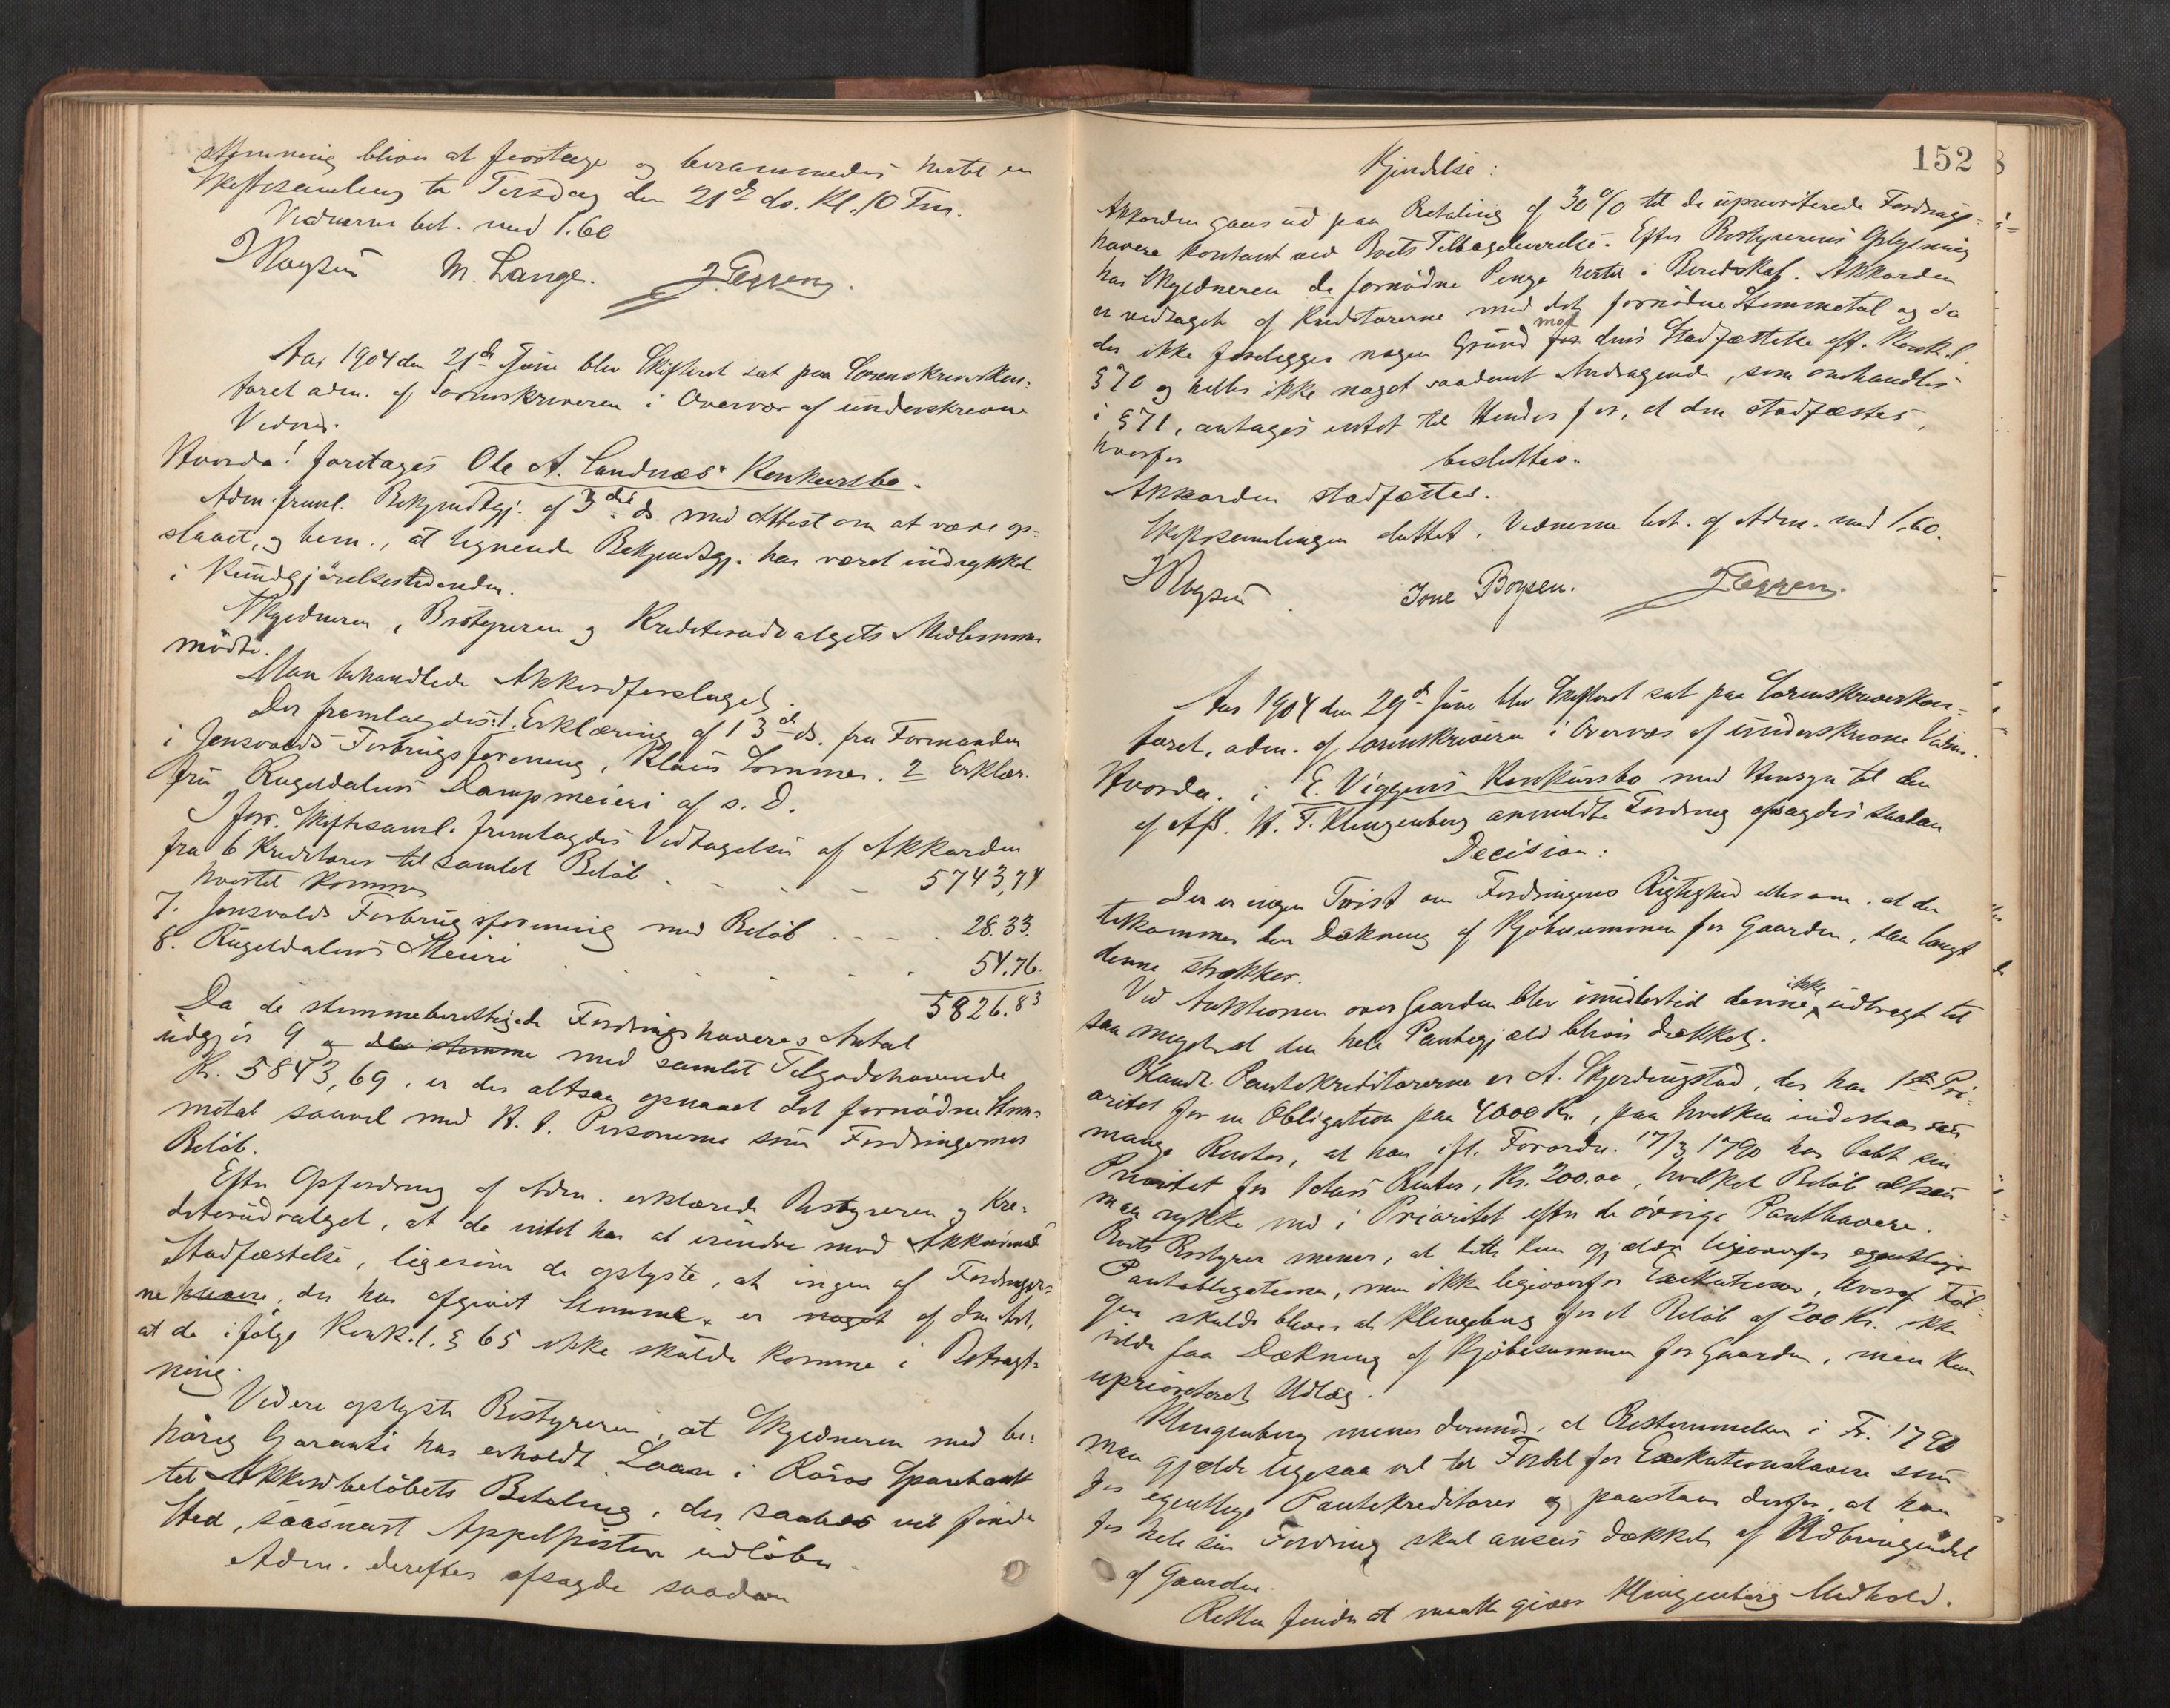 stemning bliver at foretage og berammedes hertil en
Skiftesamling til Tirsdag den 21de ds. Kl. 10 Fm.
Vidnerne bet. med 1.60
M. Lange.
Aar 1904 den 21de Juni blev Skifteret sat paa Sorenskriverkon-
toret adm. af Sorenskriveren i Overvær af underskrevne
Vidner.
Hvorda! foretages Ole A. Sandnæs' Konkursbo.
Adm. freml. Bekjendtgj. af 3die ds med Attest om at være op-
slaaet, og bem., at lignende Bekjendtgj. har været indrykket
i Kundgjörelsestidenden.
Skyldneren, Bostyreren og Kreditorudvalgets Medlemmer
mödte.
Man behandlede Akkordforslaget.
Der fremlagdes: 1. Erklæring af 13de ds. fra Formanden
i Jensvolds Forbrugsforening, Klaus Sommer. 2 Erklær.
fra Rugeldalens Dampmeieri af s. D.
I forr. Skiftesaml. fremlagdes Vedtagelse af Akkorden
fra 6 Kreditorer til samlet Belöb - - - - 5743,74
hvortil kommer
7. Jensvolds Forbrugsforening med Belöb . - - . 28.33.
8. Rugeldalens Meieri . . . . . 54.76.
5826.83
Da de stemmeberettigede Fordringshaveres Antal
udgjör 9 og der stemme med samlet Tilgodehavende
Kr. 5843,69, er der altsaa opnaaet det fornödne Stem-
metal saavel med H. t. Personerne som Fordringernes
Belöb.
Efter Opfordring af Adm. erklærede Bostyreren og Kre-
ditorudvalget, at de intet har at erindre mod Akkordens
Stadfæstelse, ligesom de oplyste, at ingen af Fordringer-
ne havere, der har afgivet Stemme, er noget af den Art,
at de ifölge Konk.l. § 65 ikke skulde komme i Betragt-
ning.
Videre oplyste Bostyreren, at Skyldneren med be-
hörig Garanti har erholdt Laan i Röros Sparebank
til Akkordbelöbets Betaling, der saaledes vil finde
Sted, saasnart Appelfristen udlöber.
Adm. derefter afsagde saadan
152
Kjendelse:
Akkorden gaar ud paa Betaling af 30% til de uprioriterede Fordrings-
havere kontant ved Boets Tilbagelevering. Efter Bostyrerens Oplysning
har Skyldneren de fornödne Penge hertil i Beredskab. Akkorden
er vedtaget af Kreditorerne med det fornödne Stemmetal og da
der ikke foreligger nogen Grund for mod dens Stadfæstelse eft. Konk.l.
§ 70 og heller ikke noget saadant Andragende, som omhandles
i § 71, antages intet til Hinder for, at den stadfæstes,
hvorfor
besluttes:
Akkorden stadfæstes.
Skiftesamlingen sluttet. Vidnerne bet. af Adm. med 1.60.
Tone Boysen.
Aar 1904 den 29de Juni blev Skifteret sat paa Sorenskriverkon-
toret, adm. af Sorenskriveren i Overvær af underskrevne Vidner.
Hvorda. i E. Viggens Konkursbo med Hensyn til den
af H. F. Klingenberg anmeldte Fordring afsagdes saadan
Decision:
Der er ingen Tvist om Fordringens Rigtighed eller om, at der
tilkommer den Dækning af Kjöbesummen for Gaarden, saa langt
denne strækker.
Ved Auktionen over Gaarden blev imidlertid denne ikke udbragt til
saa meget at den hele Pantegjæld blives dækket.
Blandt Pantekreditorerne er A. Skjerdingstad, der har 1ste Pri-
oritet for en Obligation paa 4000 Kr., paa hvilken indestaar saa
mange Renter, at han ifl. Forordn. 17/3 1790 har tabt sin
Prioritet for 1 Aars Renter, Kr. 200.00, hvilket Belöb altsaa
maa rykke ned i Prioritet efter de övrige Panthavere.
Boets Bestyrer mener, at dette kun gjælder ligeoverfor egentlige
Pantobligationer, men ikke ligeoverfor Exekutioner, hvoraf Föl-
gen skulde blive at Klingenberg for et Belöb af 200 Kr. ikke
vilde faa Dækning af Kjöbesummen for Gaarden, men kun
uprioriteret Udlæg.
Klingenberg mener derimod, at Bestemmelsen i Fr. 1790
maa gjælde ligesaa vel til Fordel for Exekutionshavere som
for egentlige Pantekreditorer og paastaar derfor, at han
for hele sin Fordring skal ansees dækket af Udbringendet
af Gaarden.
Retten finder at maatte give Klingenberg Medhold.